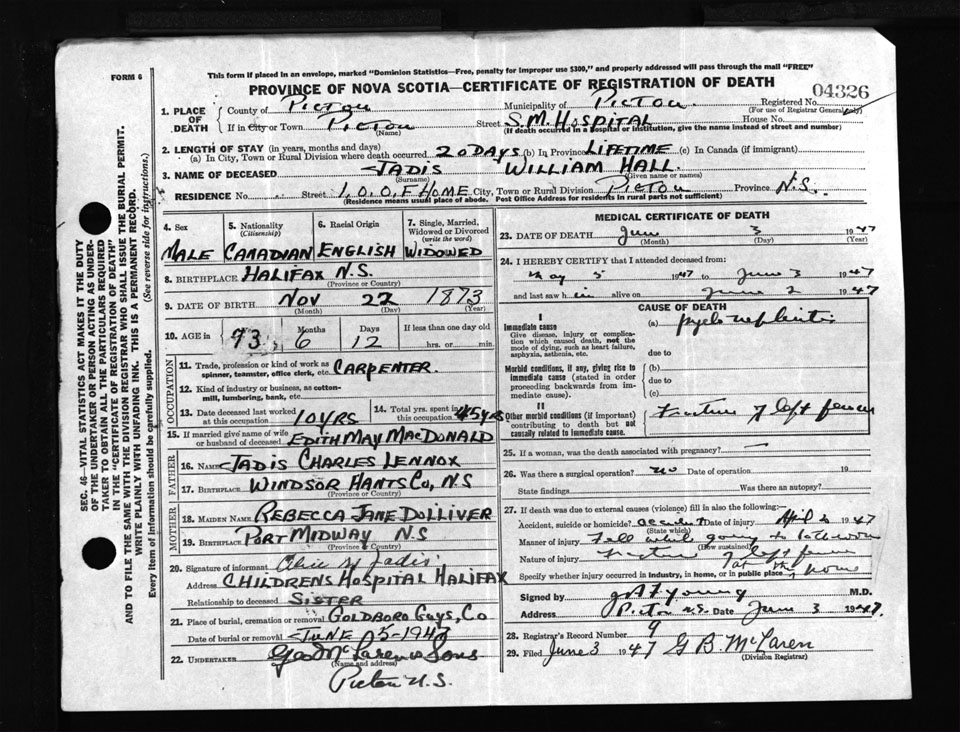 FORM 6
This form if placed in an envelope, marked "Dominion Statistics—Free, penalty for improper use $300," and properly addressed will pass through the mail "FREE"
PROVINCE OF NOVA SCOTIA—CERTIFICATE OF REGISTRATION OF DEATH
04326
1. PLACE OF DEATH
County of PICTOU Municipality of PICTOU Registered No.
(For use of Registrar General only)
If in City or Town PICTOU Street S.M. HOSPITAL House No.
(Name) (If death occurred in a hospital or institution, give the name instead of street and number)
2. LENGTH OF STAY (in years, months and days)
(a) In City, Town or Rural Division where death occurred 20 DAYS (b) In Province LIFETIME (c) In Canada (if immigrant)
3. NAME OF DECEASED JADIS WILLIAM HALL
(Surname) (Given name or names)
RESIDENCE No. Street I.O.O.F HOME City, Town or Rural Division PICTOU Province N.S.
(Residence means usual place of abode. Post Office Address for residents in rural parts not sufficient)
4. Sex 5. Nationality (Citizenship) 6. Racial Origin 7. Single, Married, Widowed or Divorced (write the word)
MALE CANADIAN ENGLISH WIDOWED
8. BIRTHPLACE HALIFAX N.S.
(Province or Country)
9. DATE OF BIRTH NOV 22 1873
(Month) (Day) (Year)
10. AGE in 73 Months 6 Days 12 If less than one day old
hrs. or min.
OCCUPATION
11. Trade, profession or kind of work as spinner, teamster, office clerk, etc. CARPENTER.
12. Kind of industry or business, as cotton-mill, lumbering, bank, etc.
13. Date deceased last worked at this occupation 10 YRS 14. Total yrs. spent in this occupation 45 yrs
15. If married give name of wife or husband of deceased EDITH MAY MACDONALD
FATHER
16. NAME JADIS CHARLES LENNOX
17. BIRTHPLACE WINDSOR HANTS CO, N.S
(Province or Country)
MOTHER
18. MAIDEN NAME REBECCA JANE DOLLIVER
19. BIRTHPLACE PORT MIDWAY N.S
(Province or Country)
20. Signature of informant Jadis
Address CHILDRENS HOSPITAL HALIFAX
Relationship to deceased SISTER
21. Place of burial, cremation or removal GOLDBORO GUYS, CO
Date of burial or removal JUNE 5-1947
22. UNDERTAKER Geo McLaren & Sons
(Name and address)
Pictou N.S.
MEDICAL CERTIFICATE OF DEATH
23. DATE OF DEATH June 3 1947
(Month) (Day) (Year)
24. I HEREBY CERTIFY that I attended deceased from:
May 5 1947 to June 3 1947
and last saw him alive on June 2 1947
CAUSE OF DEATH
I
Immediate cause
Give disease, injury or complication which caused death, not the mode of dying, such as heart failure, asphyxia, asthenia, etc.
(a) pyelonephritis
due to
Morbid conditions, if any, giving rise to immediate cause (stated in order proceeding backwards from immediate cause).
(b)
due to
(c)
II
Other morbid conditions (if important) contributing to death but not causally related to immediate cause.
fracture of left femur
25. If a woman, was the death associated with pregnancy? —
26. Was there a surgical operation? no Date of operation 19
State findings Was there an autopsy?
27. If death was due to external causes (violence) fill in also the following:
Accident, suicide or homicide? accident Date of injury April 1947
(State which)
Manner of injury Fell while going to bathroom
(How sustained)
Nature of injury fracture of left femur
Specify whether injury occurred in industry, in home, or in public place at the home
Signed by Young M.D.
Address Pictou N.S. Date June 3 1947.
28. Registrar's Record Number 9
29. Filed June 3 1947 G B McLaren
(Division Registrar)
SEC. 46—VITAL STATISTICS ACT MAKES IT THE DUTY
OF THE UNDERTAKER OR PERSON ACTING AS UNDER-
TAKER TO OBTAIN ALL THE PARTICULARS REQUIRED
IN THE "CERTIFICATE OF REGISTRATION OF DEATH"
AND TO FILE THE SAME WITH THE DIVISION REGISTRAR WHO SHALL ISSUE THE BURIAL PERMIT.
WRITE PLAINLY WITH UNFADING INK. THIS IS A PERMANENT RECORD.
Every item of information should be carefully supplied. (See reverse side for instructions.)